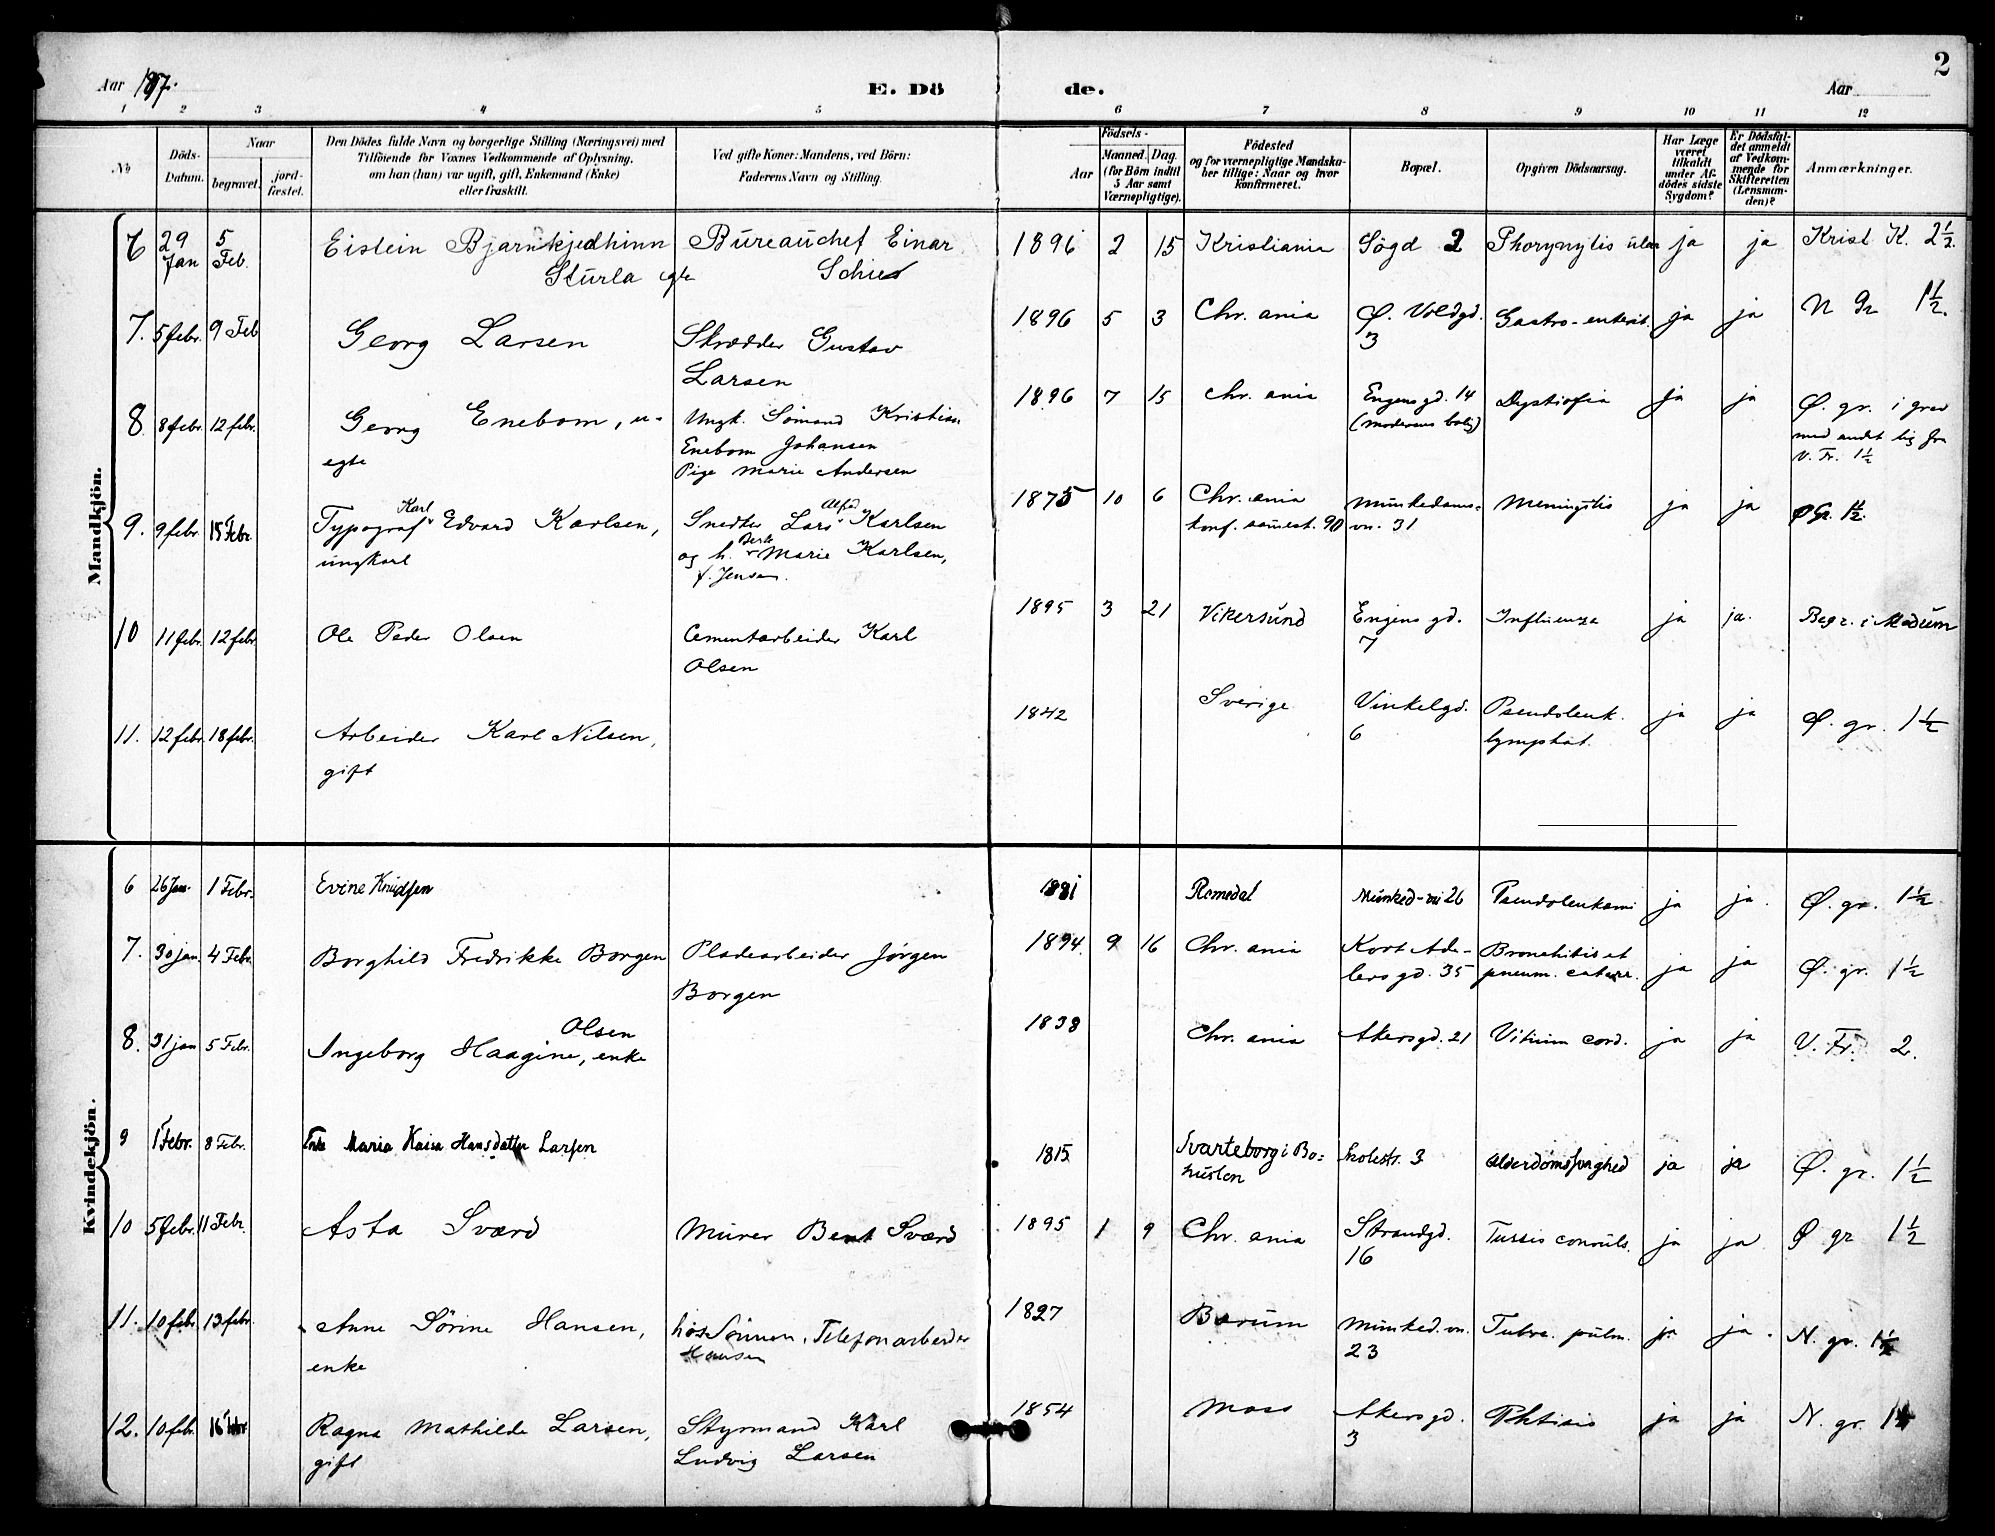 2
Aar 1897.
E. Dö
de.
Aar
1 2 3 4 5 6 7 8 9 10 11 12
No
Döds-Datum.
Naar
begravet.
jordfæstet.
Den Dödes fulde Navn og borgerlige Stilling (Næringsvei) med
Tilföiende for Voxnes Vedkommende af Oplysning.
om han (hun) var ugift, gift, Enkemand (Enke)
eller fraskilt.
Ved gifte Koner: Mandens, ved Börn:
Faderens Navn og Stilling.
Födsels-
Aar
Maaned. Dag.
(for Börn indtil
5 Aar samt
Værnepligtige).
Födested
og for værnepligtige Mandska-
ber tillige: Naar og hvor
konfirmeret.
Bopæl.
Opgiven Dödsaarsag.
Har Læge
været
tilkaldt
under Af-
dödes sidste
Sygdom?
Er Dödsfal-
det anmeldt
af Vedkom-
mende for
Skifteretten
(Lensman-
den)?
Anmærkninger.
Mandkjön.
6 29 Jan 5 Feb. Eistein Bjarn Sturla egte Bureauchef Einar 1896 2 15 Kristiania Sögd 2 ja ja Krist K. 2 1/2.
7. 5 febr. 9 Feb Georg Larsen Skrædder Gustav Larsen 1896 5 3 Chr. ania Ø. Voldgd. 3 Gastro-enterit. ja ja N Gr 1 1/2.
8. 8 febr. 12 febr. Georg Enebom, u-egte Ungk. Sømand Kristian Enebom Johansen Pige Marie Andersen 1896 7 15 Chr. ania Engensgd. 14 (moderens bolig) Dystrofia ja ja Ø. gr. i grav med andet lig fra V. Fr. 1 1/2
9. 9 febr. 15 Febr. Typograf Karl Edvard Karlsen, ungkarl Snedker Lars Alfred Karlsen og h. Marie Karlsen, f. Jensen. 1875 10 6 Chr. ania konf. sammest. 90 Munkedams-vn. 31 Meningitis ja ja Ø Gr. 1 1/2.
10 11 febr. 12 febr. Ole Peder Olsen Cementarbeider Karl Olsen 1895 3 21 Vikersund Engens gd. 7 Influenza ja ja. Begr. i Modum
11. 12 febr. 18 febr. Arbeider Karl Nilsen, gift 1842 Sverige Vinkelgd. 6 Pseudoleuk. lymphat. ja ja Ø. gr. 1 1/2
Kvindekjön.
6 26 Jan. 1 Febr. Evine Knudsen 1881 Romedal Munked-vei 26 Pseudoleukæmi ja ja. Ø. gr. 1 1/2
7. 30 jan. 4 Febr. Borghild Fredrikke Borgen Pladearbeider Jörgen Borgen 1894. 9 16 Chr. ania Kort Ade-lersgd. 35 Bronchitis et pneum. catarr. ja ja Ø. gr. 1 1/2
8. 31 jan 5 Febr. Ingeborg Haagine Olsen, enke 1838 Chr. ania Akersgd. 21 Vitium cord. ja ja V. Fr. 2.
9 1 Febr. 8 Febr. Enke Maria Kaisa Hansdatter Larsen 1815 Svarteborg i Bo-huslen Skolestr. 3 Alderdomssvaghed ja ja Ø. gr. 1 1/2
10 5 febr. 11 Febr. Asta Sværd Murer Bernt Sværd 1895 1 9 Chr. ania Strandgd. 16 Tussis convuls. ja ja Ø gr 1 1/2
11. 10 febr. 13 febr. Anne Sörine Hansen, enke hos Sönnen, Telefonarbeider Hansen 1827 Bærum Munked. vn. 23 Tuberc. pulm. ja ja. N. gr. 1 1/2
12. 10 febr. 16 Ragna Mathilde Larsen, gift Styrmand Karl Ludvig Larsen 1854 Moss Akersgd. 3 Phtisis ja ja N. gr.